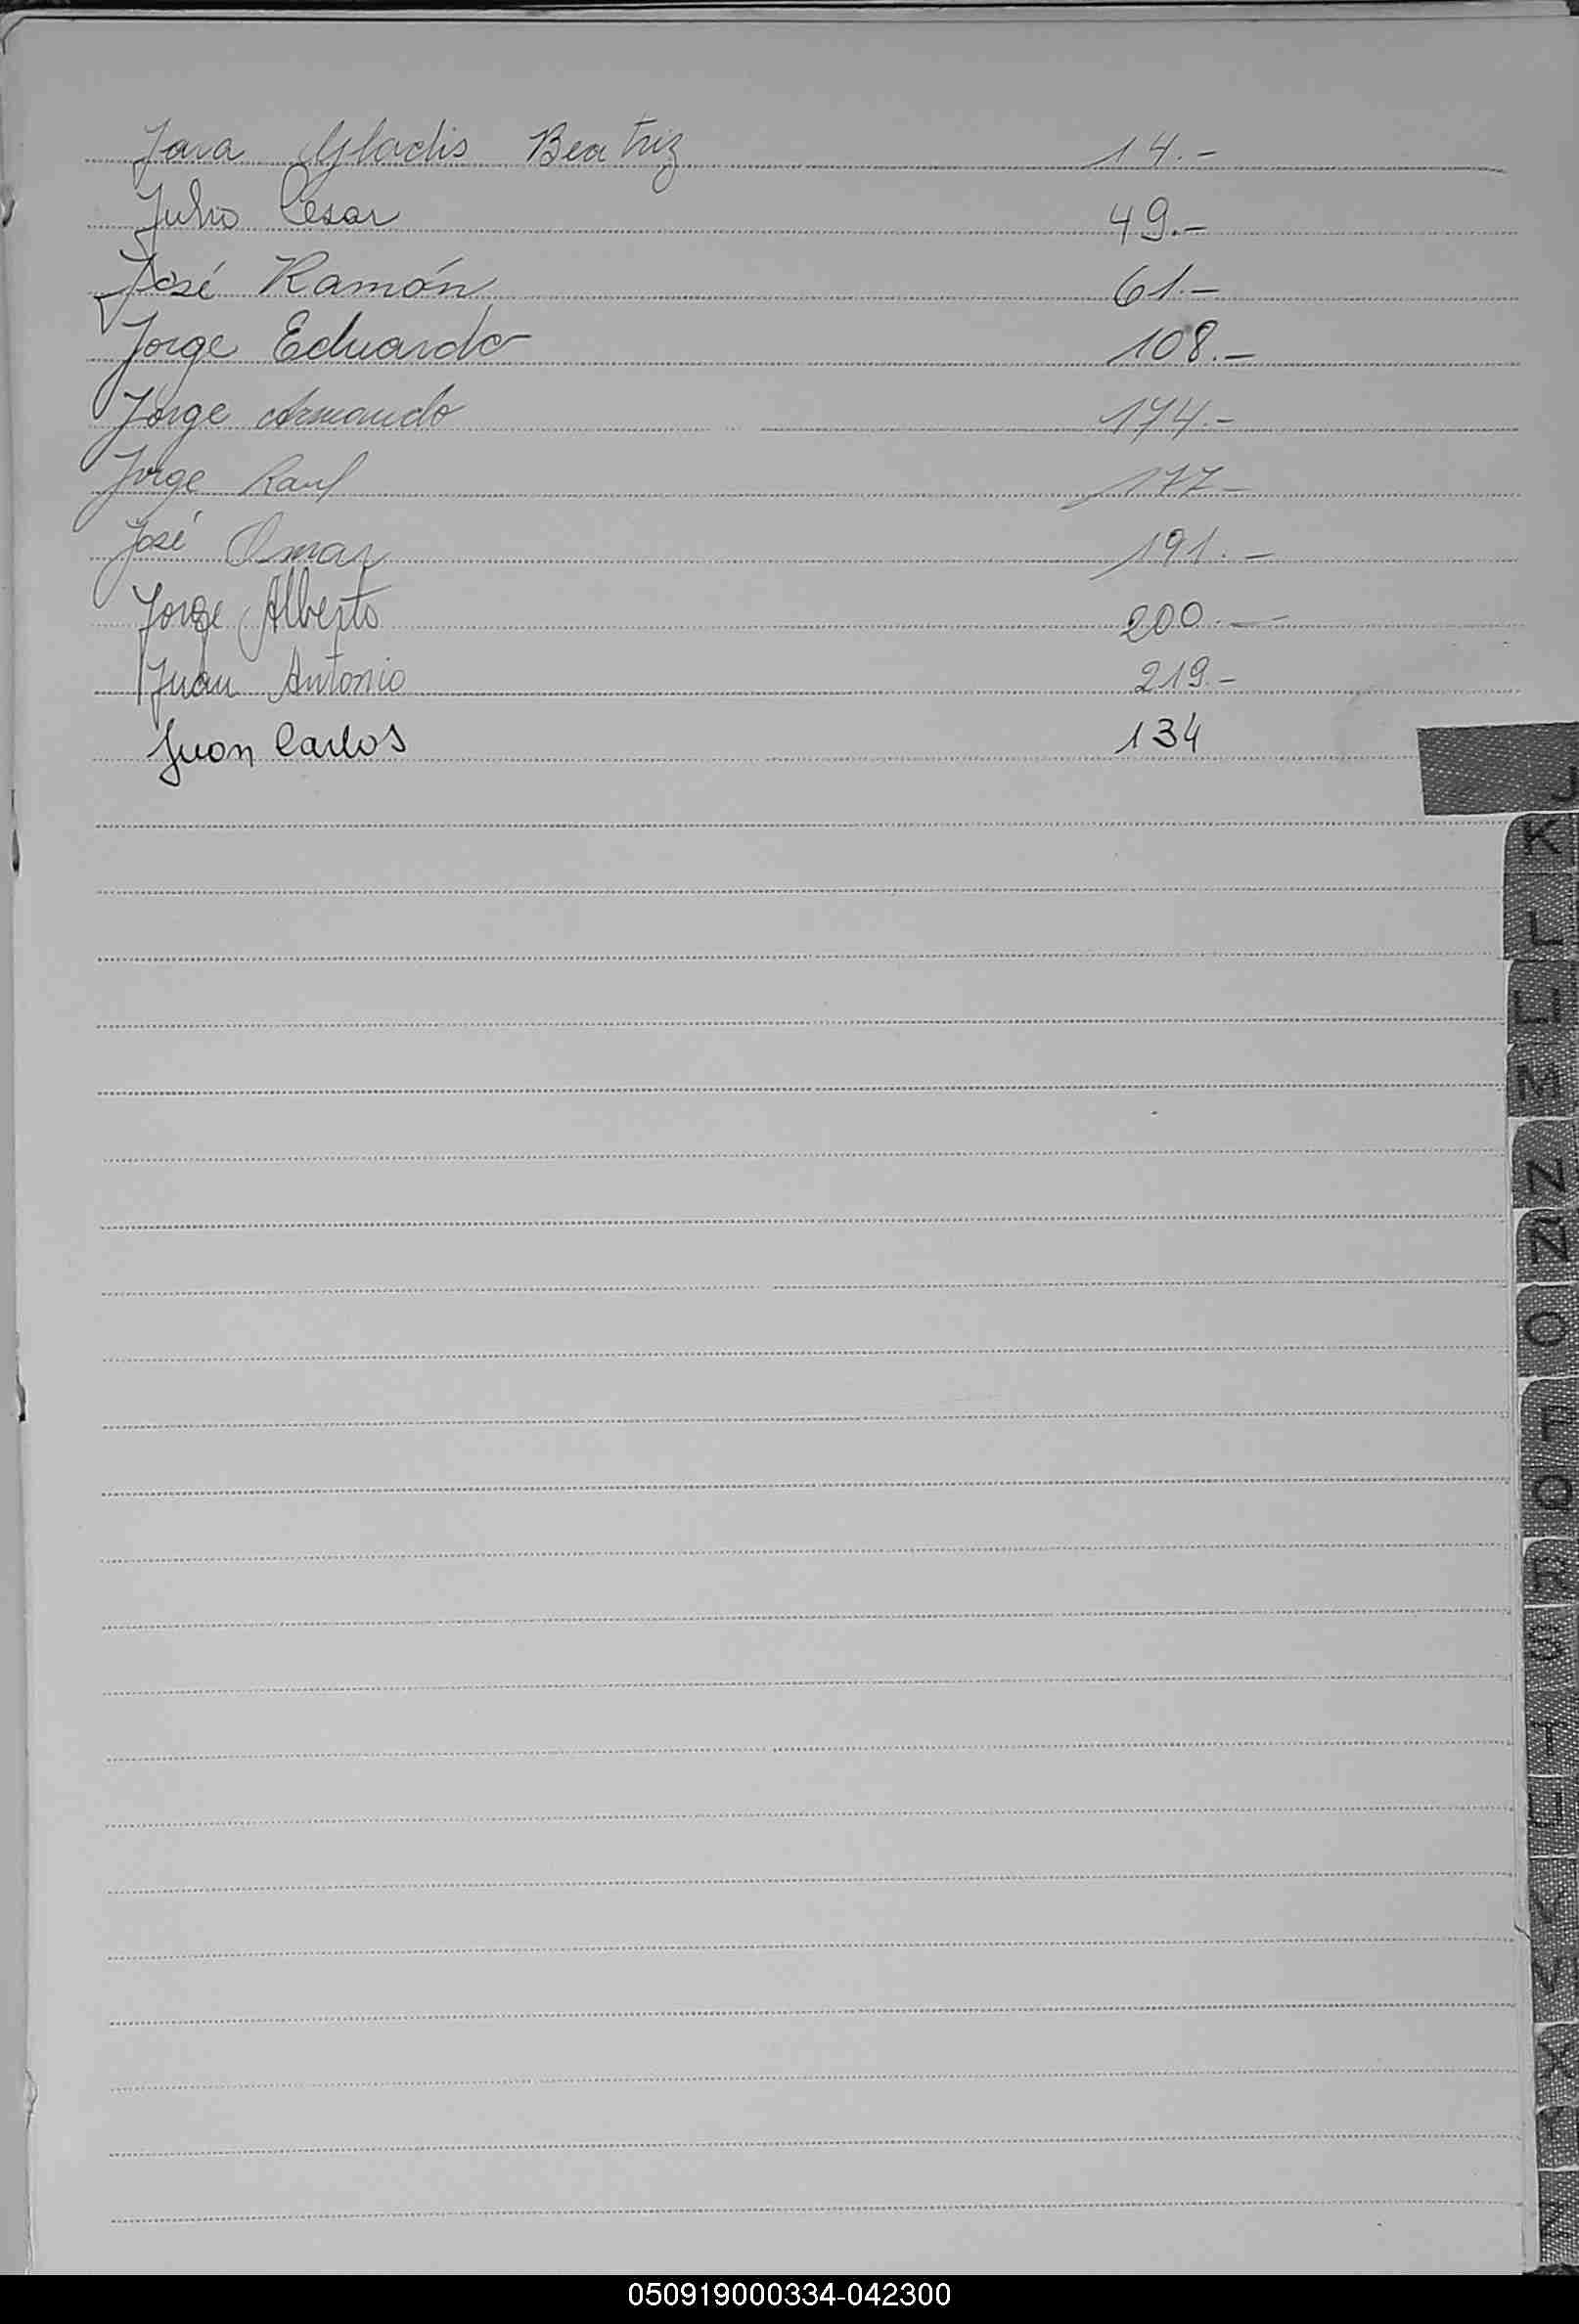 Jara Gladis Beatriz 14.-
Julio Cesar 49.-
José Ramón 61.-
Jorge Eduardo 108.-
Jorge Armando 174.-
Jorge Raul 177-
José Omar 191.-
Jorge Alberto 200.-
Juan Antonio 219.-
Juan Carlos 134
J
K
L
LL
M
N
Ñ
O
P
Q
R
S
T
U
V
W
X
Y
Z
050919000334-042300